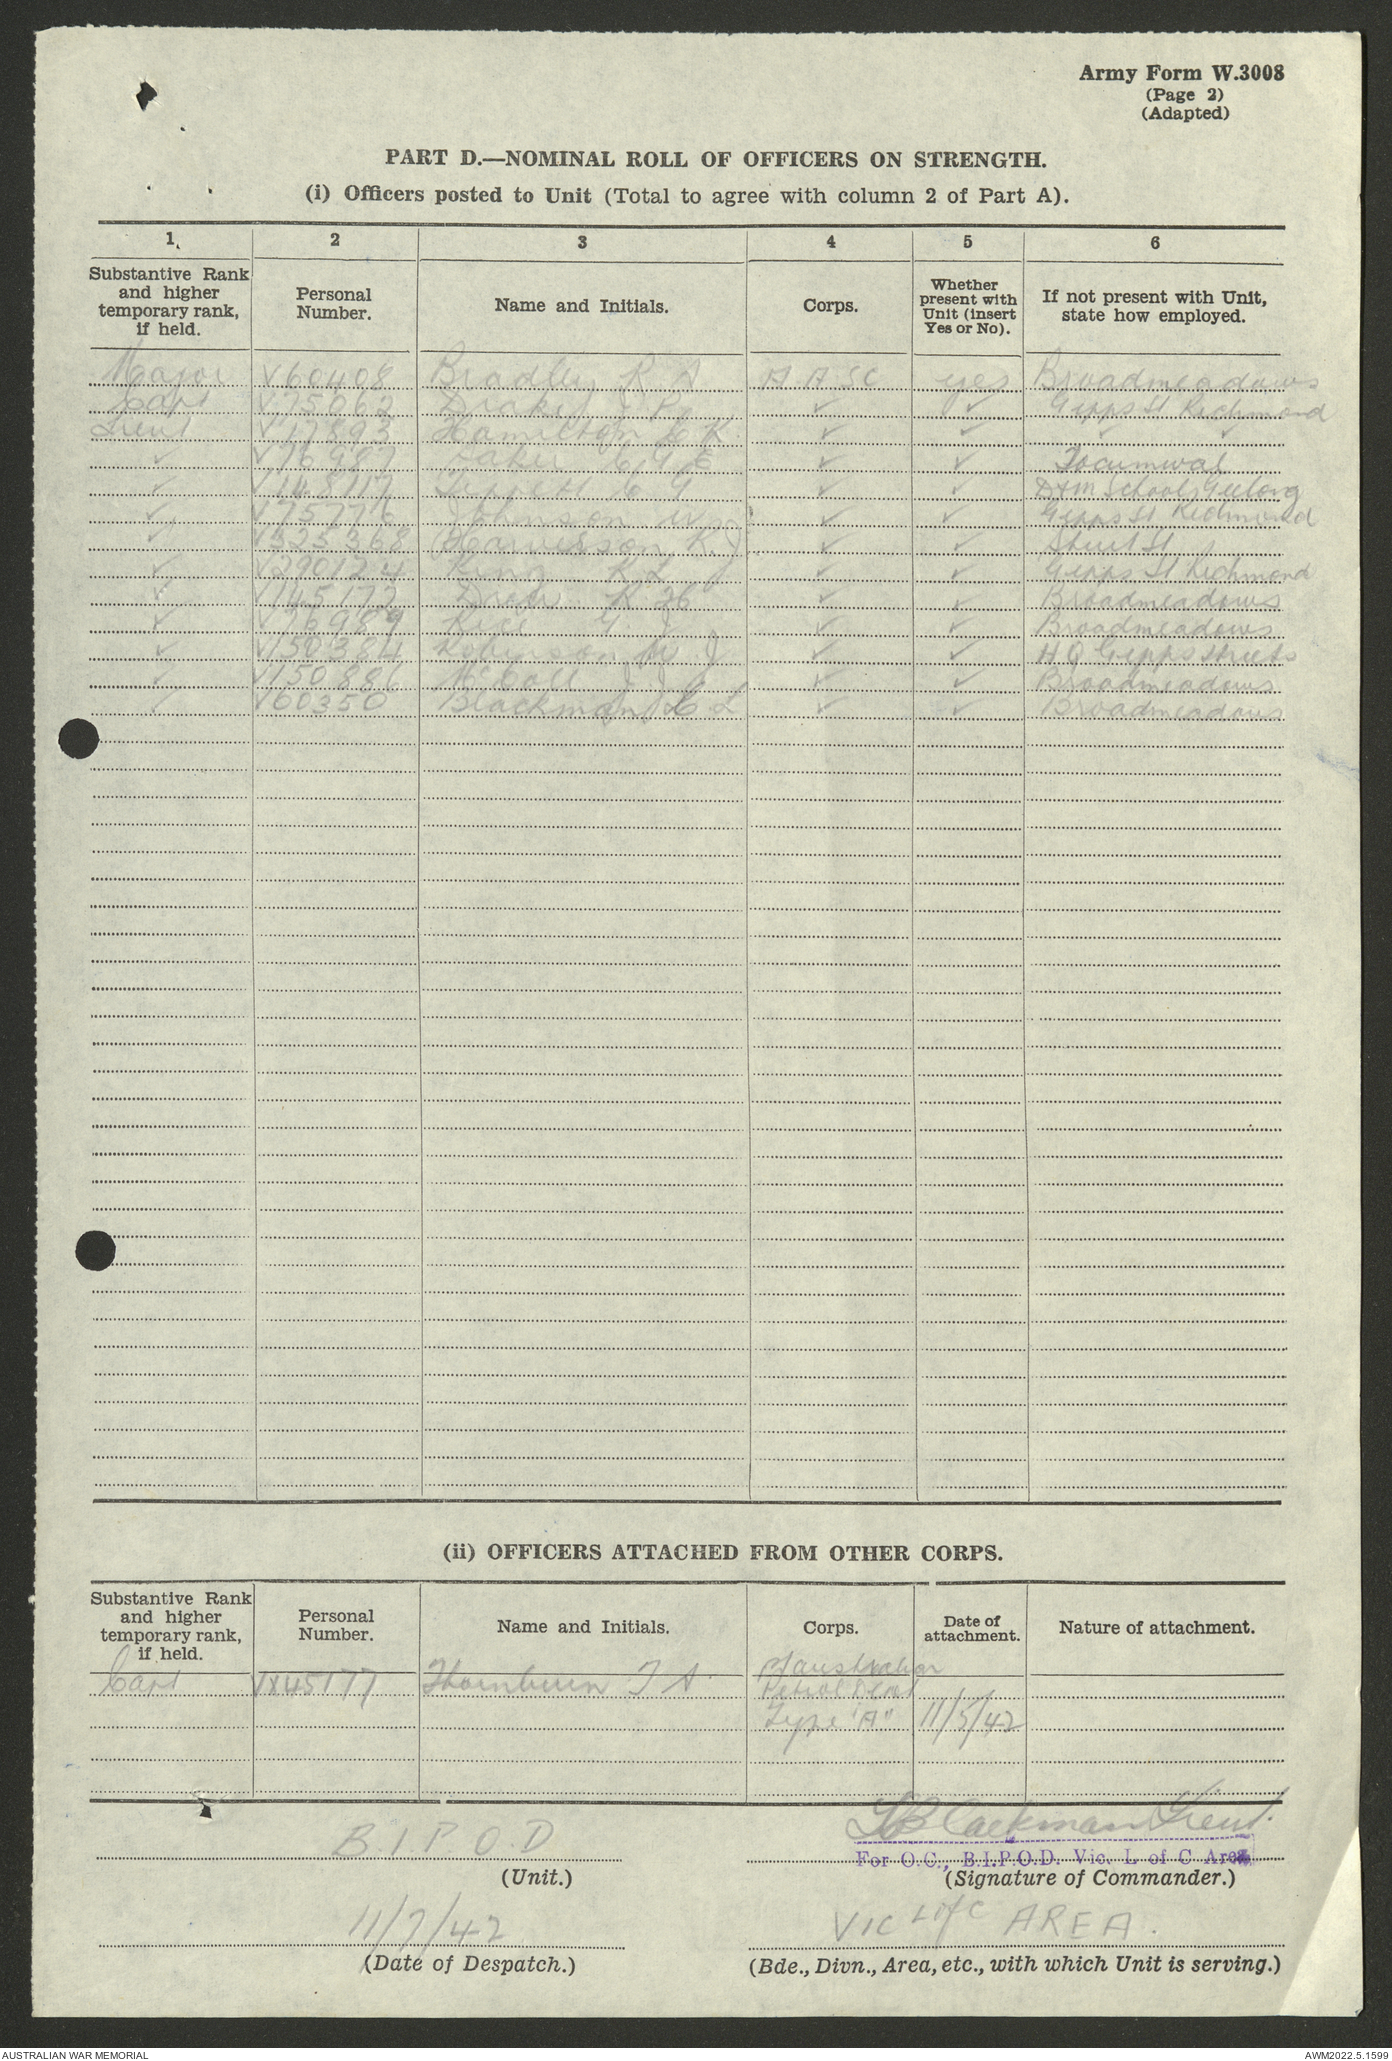 Army Form W.3008
(Page 2)
(Adapted)
PART D.—NOMINAL ROLL OF OFFICERS ON STRENGTH.
(i) Officers posted to Unit (Total to agree with column 2 of Part A).
1. 2 3 4 5 6
Substantive Rank and higher temporary rank, if held.
Personal Number.
Name and Initials.
Corps.
Whether present with Unit (insert Yes or No).
If not present with Unit, state how employed.
Major V60408 Bradley R A A.A.SC yes Broadmeadows
Capt V75062 Drake J P ✓ ✓ Gipps St Richmond
Lieut V17893 Hamilton C K ✓ ✓ ✓ ✓
✓ V76987 C G E ✓ ✓ Tocumwal
✓ V148117 Tippett C G ✓ ✓ D&M School Geelong
✓ V75776 Johnson ✓ ✓ Gipps St Richmond
✓ V325368 Harverson R.J. ✓ ✓ Sturt St
✓ V290124 King R L J ✓ ✓ Gipps St Richmond
✓ V145172 Drew R ✓ ✓ Broadmeadows
✓ V76989 Rice G. J ✓ ✓ Broadmeadows
✓ V150384 Robinson W J ✓ ✓ H Q Gipps Streets
✓ V150886 McCall J J ✓ ✓ Broadmeadows
✓ V60350 Blackman L ✓ ✓ Broadmeadows
(ii) OFFICERS ATTACHED FROM OTHER CORPS.
Substantive Rank and higher temporary rank, if held.
Personal Number.
Name and Initials.
Corps.
Date of attachment.
Nature of attachment.
Capt VX45177 Thornburn T A Australian
Petrol Depot
Type "A" 11/5/42
B.I.P.O.D
(Unit.)
Blackman Lieut.
For O.C., B.I.P.O.D. Vic. L of C Area
(Signature of Commander.)
11/7/42
(Date of Despatch.)
VIC L of C AREA.
(Bde., Divn., Area, etc., with which Unit is serving.)
AUSTRALIAN WAR MEMORIAL
AWM2022.5.1599